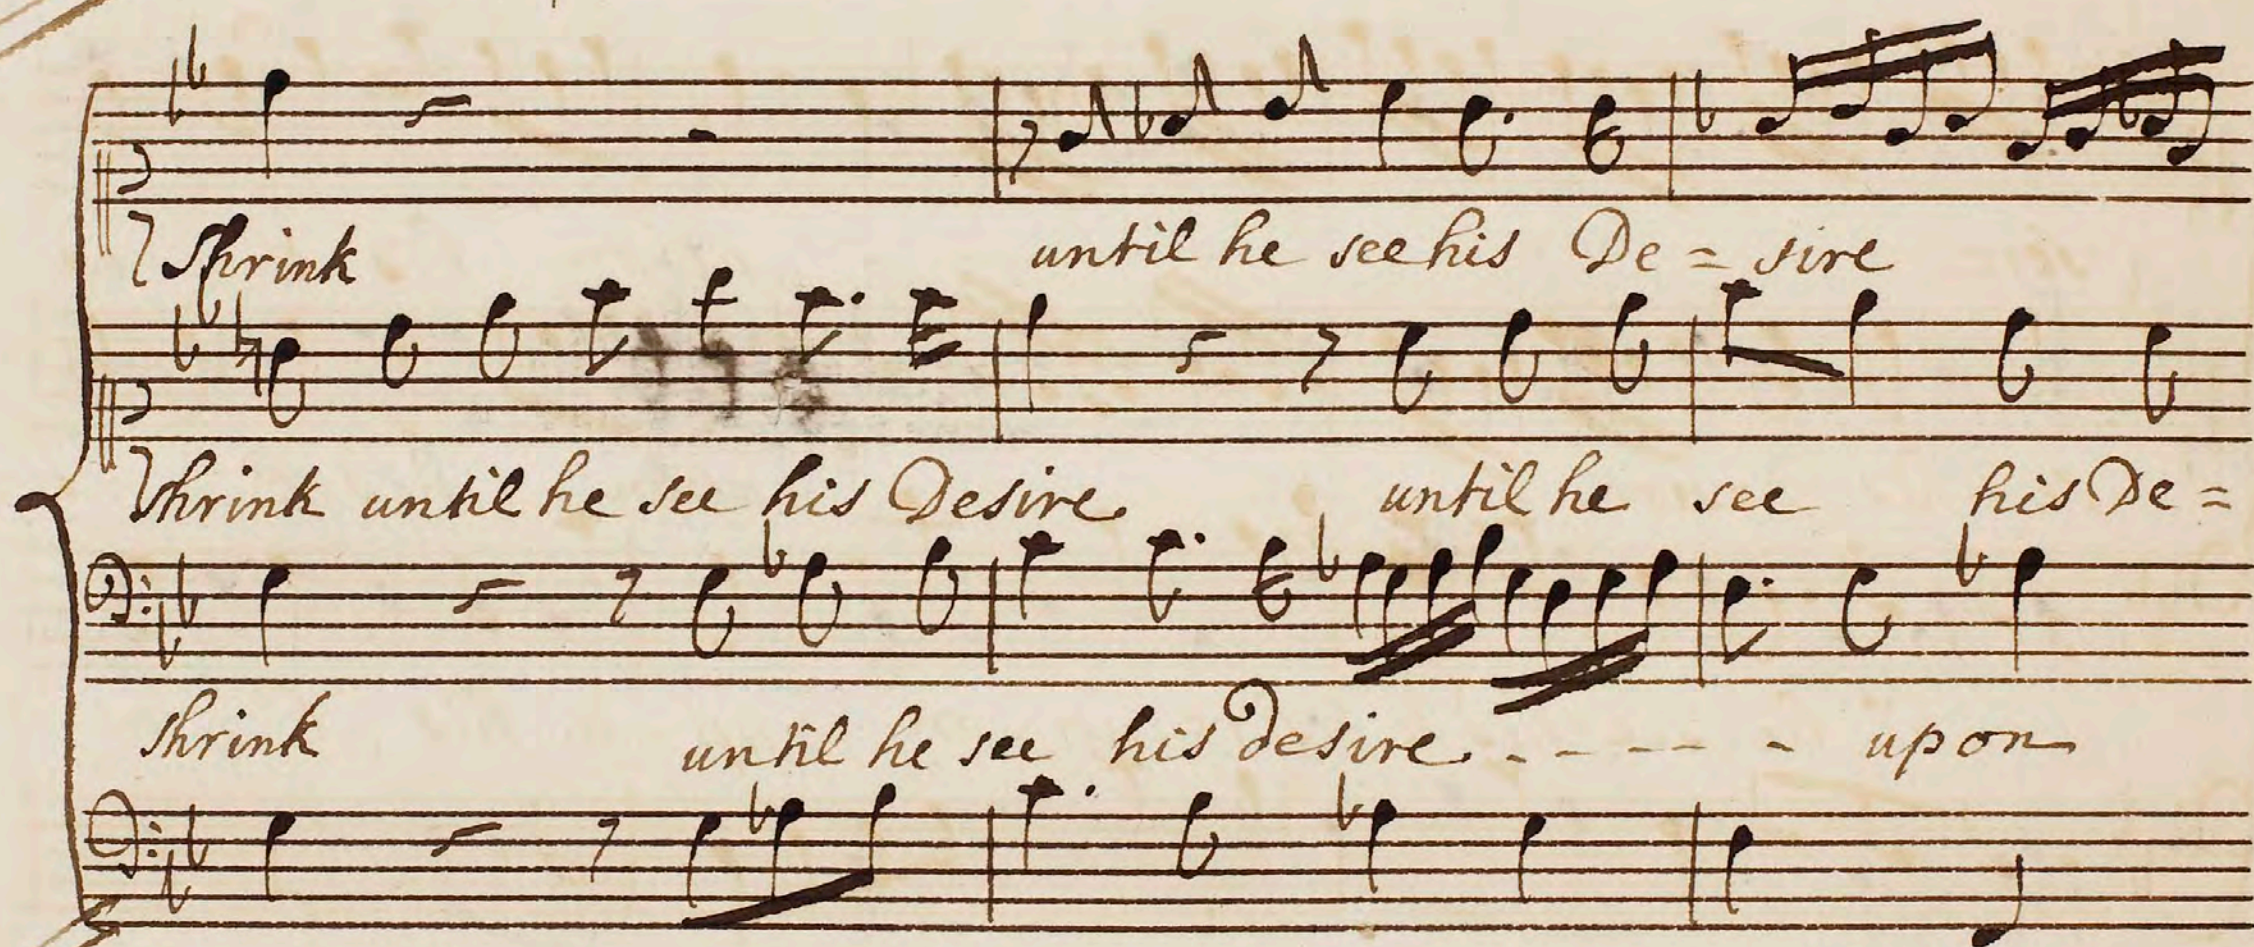 Shrink until he see his De = sire
Shrink until he see his Desire until he see his De =
Shrink until he see his desire - - - - - upon